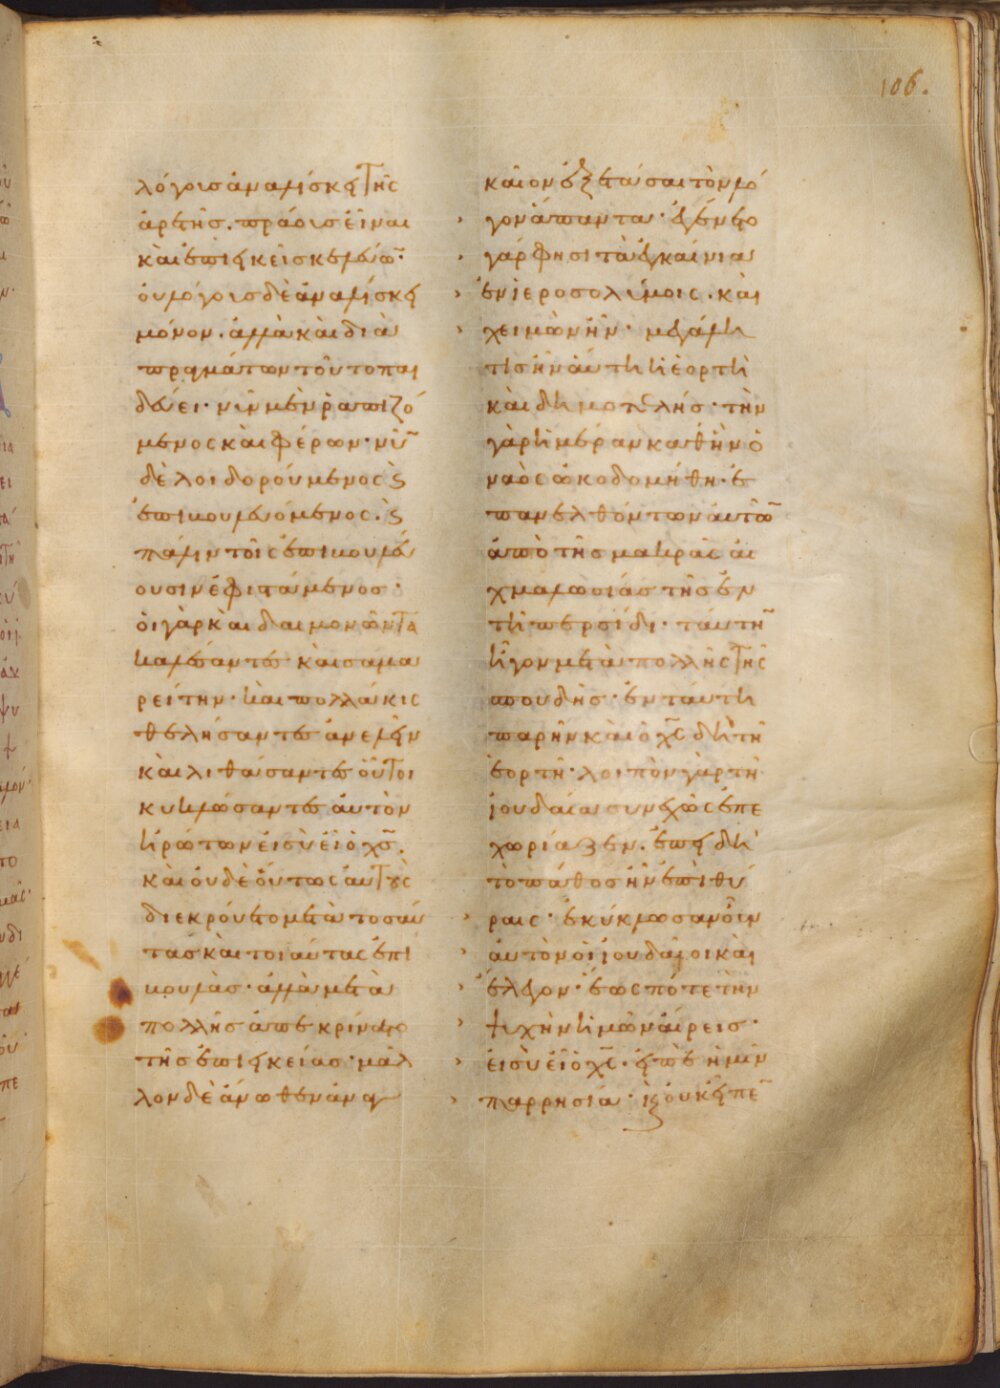 106.
λόγοισ ἀναλίσκει τῆς
ἀρετῆσ. πράοισ εἶναι
καὶ ἐπιεικεῖσ κελεύω·
οὐ λόγοισ δὲ ἀναλίσκει
μόνον. ἀλλὰ καὶ διὰ
πραγμάτων τοῦτο παι
δεύει· νῦν μὲν ῥαπιζό
μενος καὶ φέρων· νῦ
δὲ λοιδορούμενος ϗ
ἐπιβουλευόμενος. ϗ
πάλιν τοῖς ἐπιβουλεύ
ουσιν ἐφιστάμενοσ·
οἱ γὰρ καὶ δαιμονῶντα
καλέσαντεσ καὶ σαμα
ρείτην· καὶ πολλάκις
θελήσαντεσ ἀνελεῖν
καὶ λιθάσαντεσ οὗτοι
κυκλώσαντεσ αὐτὸν
ἠρώτων εἰ σὺ εἶ ὁ χσ̄.
καὶ οὐδὲ οὕτως αὐτοὺς
διεκρούετο μετὰ τοσαύ
τασ καὶ τοιαύτας ἐπι
βουλὰσ· ἀλλὰ μετὰ
πολλῆσ ἀπεκρίνατο
τῆσ ἐπιεικείασ· μᾶλ
λον δὲ ἄνωθεν ἀναγ
καῖον ἐξετάσαι τὸν λό
γον ἅπαντα· ἐγένετο
γάρ φησι τὰ ἐγκαίνια
ἐν ἱεροσολύμοις. καὶ
χειμὼν ἦν· μεγάλη
τισ ἦν αὐτη ἡ ἑορτὴ
καὶ δημοτελήσ· τὴν
γὰρ ἡμέραν καθ ἣν ὁ
ναὸς ὠκοδομήθη· ἐ
πανελθόντων αὐτῶ
ἀπὸ τῆσ μακρᾶς αἰ
χμαλωσίασ τῆσ ἐν
τῆ περσίδι· ταύτη
ἦγον μετὰ πολλῆς τῆς
σπουδῆσ· ἐν ταύτη
παρῆν καὶ ὁ χς̄ δὴ τῆ
ἑορτῆ· λοιπὸν γὰρ τῆ
ἰουδαία συνεχῶς ἐπε
χωρίαζεν. ἐπειδὴ
τὸ πάθοσ ἦν ἐπὶ θύ
ραις· ἐκύκλωσαν οὖν
αὐτὸν οἱ ἰουδαῖοι καὶ
ἔλεγον· ἕως πότε τὴν
ψυχὴν ἡμῶν αἴρεισ·
εἰ σὺ εἶ ὁ χς̄. εἰπὲ ἡμῖν
παρρησία· ὃς οὐκ εἶπε